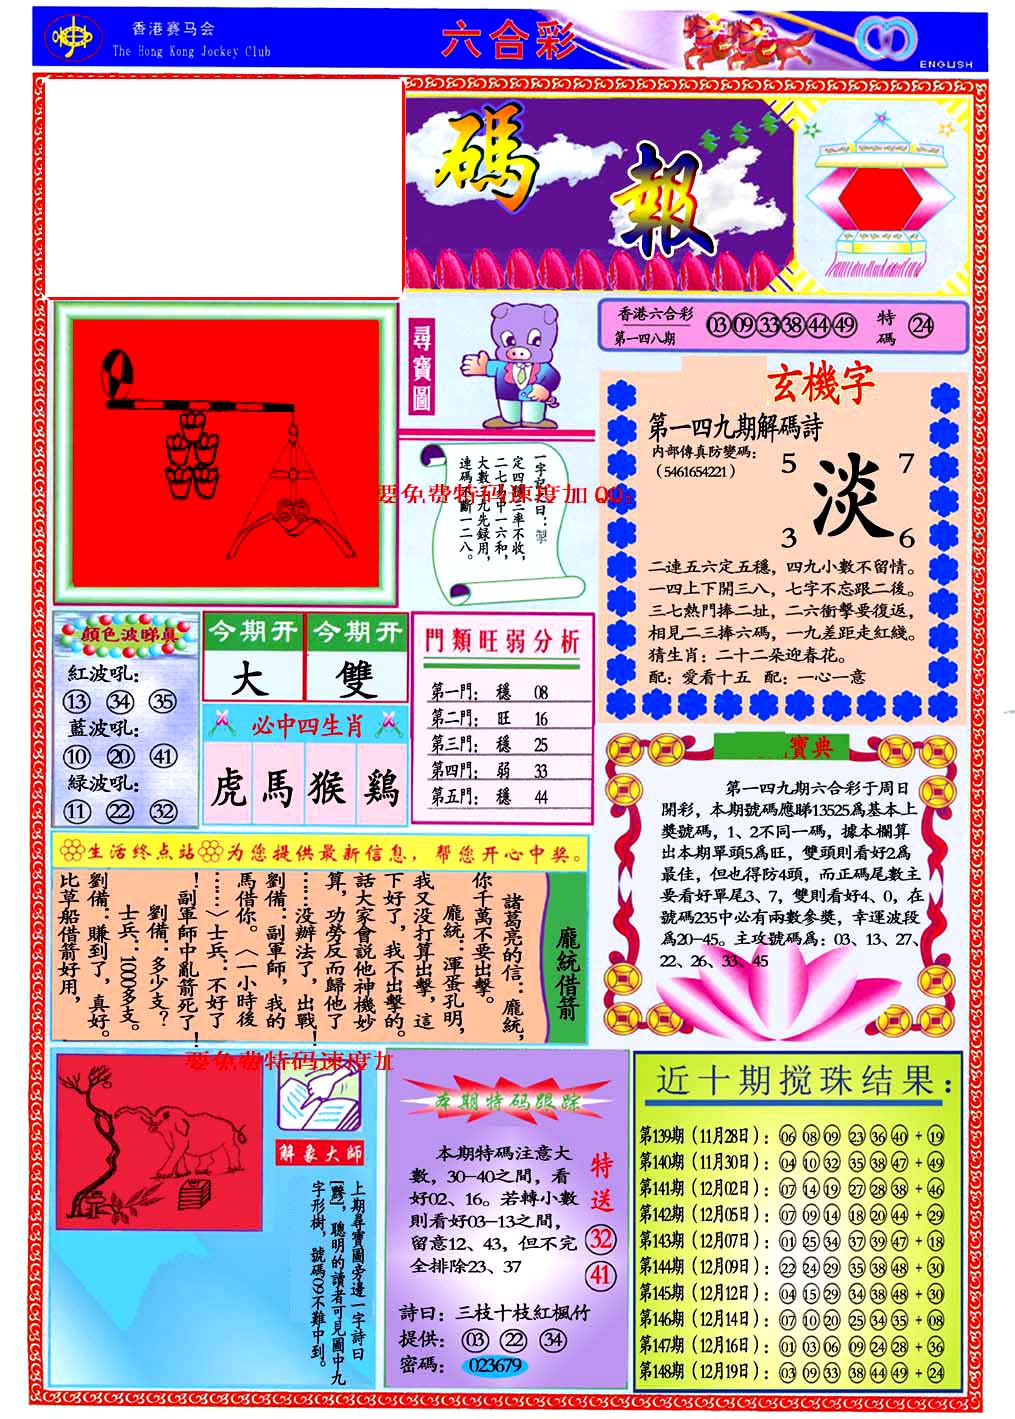 香港赛马会
The Hong Kong Jockey Club
六合彩
ENGLISH
碼報
尋寶圖
香港六合彩
第一四八期
03 09 33 38 44 49
特碼
24
一字記之曰：
定四歸三率不收，
二七
中一六和，
大數
九先録用，
連碼
斷一二八。
要免费特码速度加QQ:
玄機字
第一四九期解碼詩
内部傳真防變碼：
（5461654221）
5
7
淡
3
6
二連五六定五穩，四九小數不留情。
一四上下開三八，七字不忘跟二後。
三七熱門捧二扯，二六衝擊要復返，
相見二三捧六碼，一九差距走紅綫。
猜生肖：二十二朵迎春花。
配：愛看十五 配：一心一意
顏色波睇真
紅波吼：
13 34 35
藍波吼：
10 20 41
緑波吼：
11 22 32
今期开
今期开
大
雙
必中四生肖
虎 馬 猴 鷄
門類旺弱分析
第一門： 穩 08
第二門： 旺 16
第三門： 穩 25
第四門： 弱 33
第五門： 穩 44
寶典
第一四九期六合彩于周日
開彩，本期號碼應睇13525爲基本上
獎號碼，1、2不同一碼，據本欄算
出本期單頭5爲旺，雙頭則看好2爲
最佳，但也得防4頭，而正碼尾數主
要看好單尾3、7，雙則看好4、0，在
號碼235中必有兩數參獎，幸運波段
爲20-45。主攻號碼爲：03、13、27、
22、26、33、45
生活终点站 为您提供最新信息，帮您开心中奖。
龐統借箭
諸葛亮的信：龐統，
你千萬不要出擊。
龐統：渾蛋孔明，
我又没打算出擊，這
下好了，我不出擊的。
話大家會説他神機妙
算，功勞反而歸他了
……没辦法了，出戰！
劉備：副軍師，我的
馬借你。〈一小時後
……〉士兵：不好了
！副軍師中亂箭死了！
劉備：多少支？
士兵：1000多支。
劉備：賺到了，真好。
比草船借箭好用，
要免费特码速度加
解象大師
上期尋寶圖旁邊一字詩曰
［黔］，聰明的讀者可見圖中九
字形樹，號碼09不難中到。
本期特码跟踪
本期特碼注意大
數，30-40之間，看
好02、16。若轉小數
則看好03-13之間，
留意12、43，但不完
全排除23、37
特送
32
41
詩曰：三枝十枝紅楓竹
提供： 03 22 34
密碼： 023679
近十期搅珠结果：
第139期（11月28日）：06 08 09 23 36 40 + 19
第140期（11月30日）：04 10 32 35 38 47 + 49
第141期（12月02日）：07 14 19 27 28 38 + 46
第142期（12月05日）：07 09 14 18 20 44 + 29
第143期（12月07日）：01 25 34 37 39 47 + 18
第144期（12月09日）：22 24 29 35 38 48 + 30
第145期（12月12日）：04 15 29 34 38 48 + 30
第146期（12月14日）：07 10 20 25 34 35 + 08
第147期（12月16日）：01 03 06 09 24 28 + 36
第148期（12月19日）：03 09 33 38 44 49 + 24